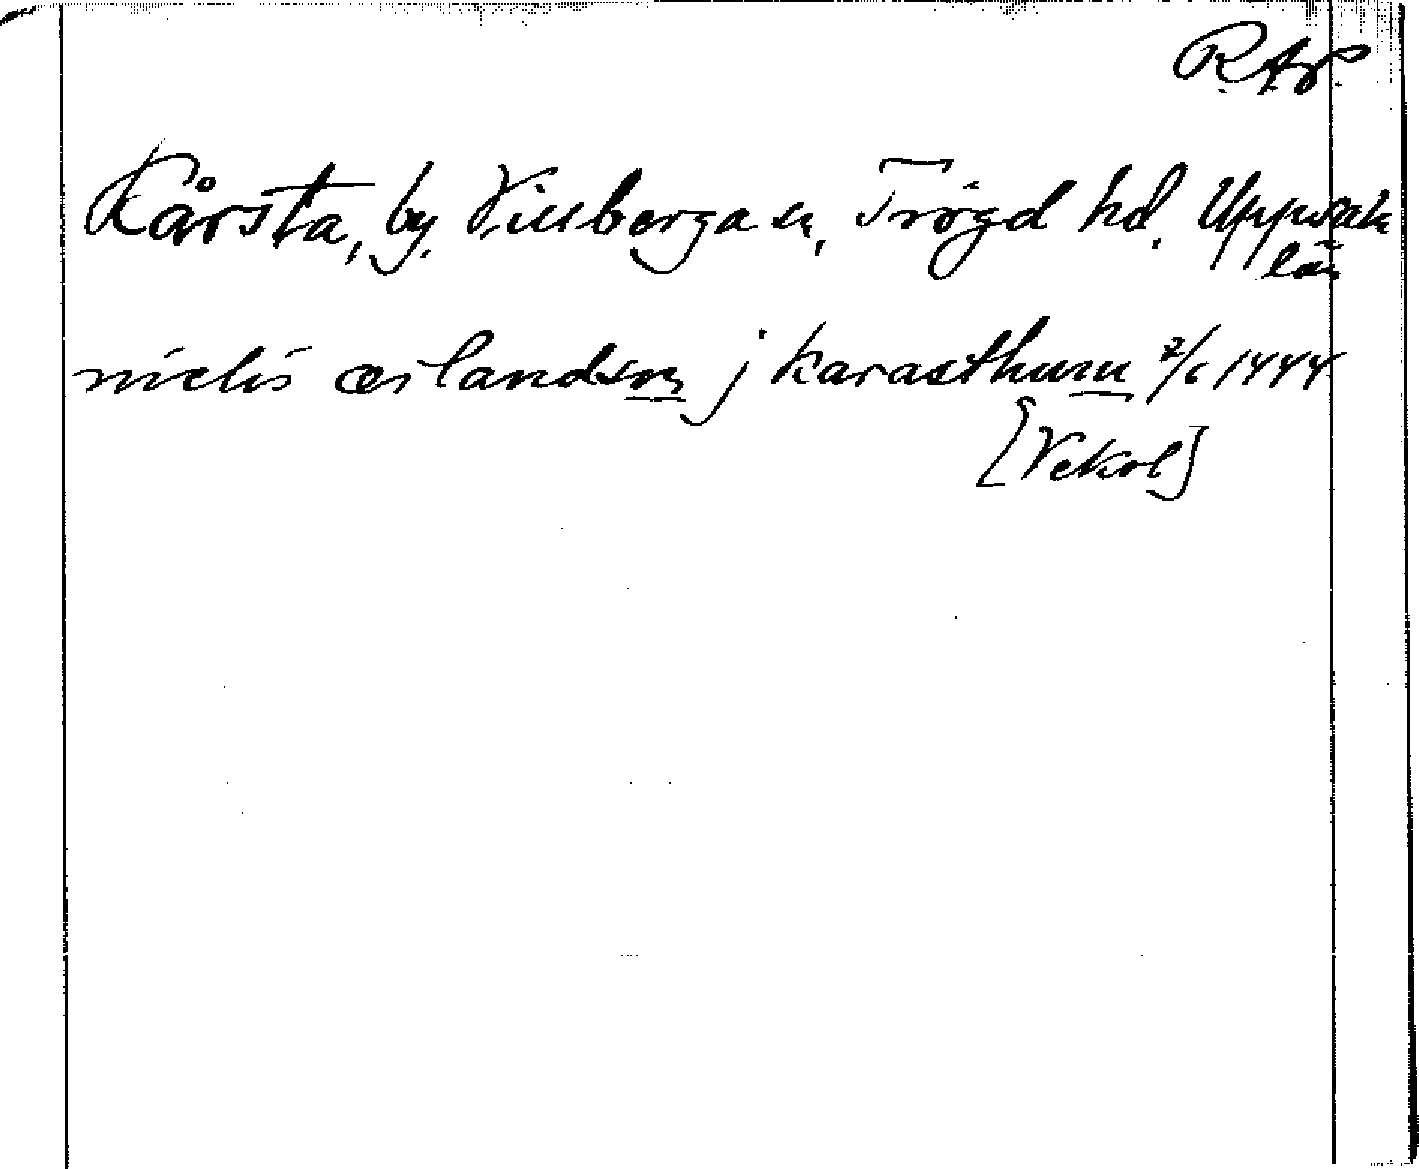 RAP
Kårsta, by, Villberga sn, Trögd hd. Uppsala
län
nielis ærlandson j karasthum 2/6 1444
[Vekol]